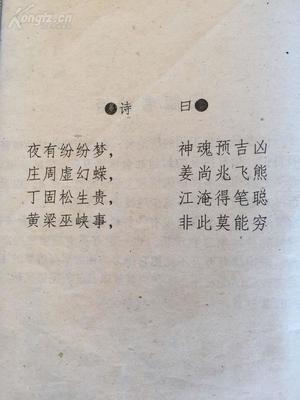 Kongfz.cn
诗 曰
夜有纷纷梦， 神魂预吉凶
庄周虚幻蝶， 姜尚兆飞熊
丁固松生贵， 江淹得笔聪
黄梁巫峡事， 非此莫能穷